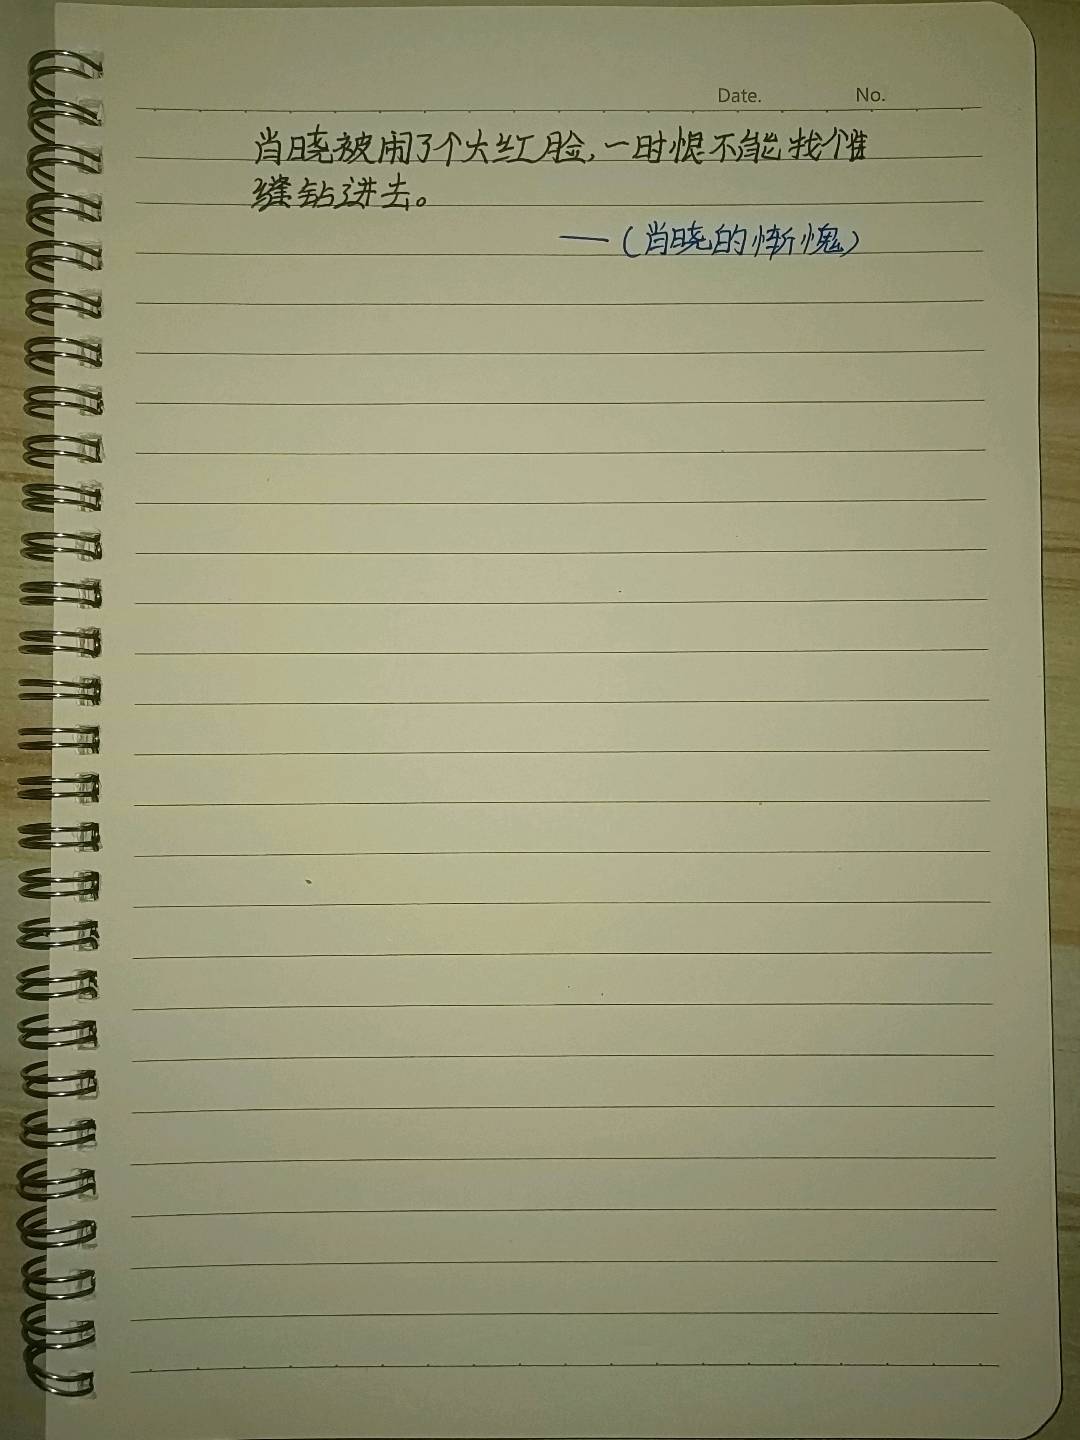 Date. No.
肖晓被闹了个大红脸,一时恨不能找个
缝钻进去。
——(肖晓的惭愧)